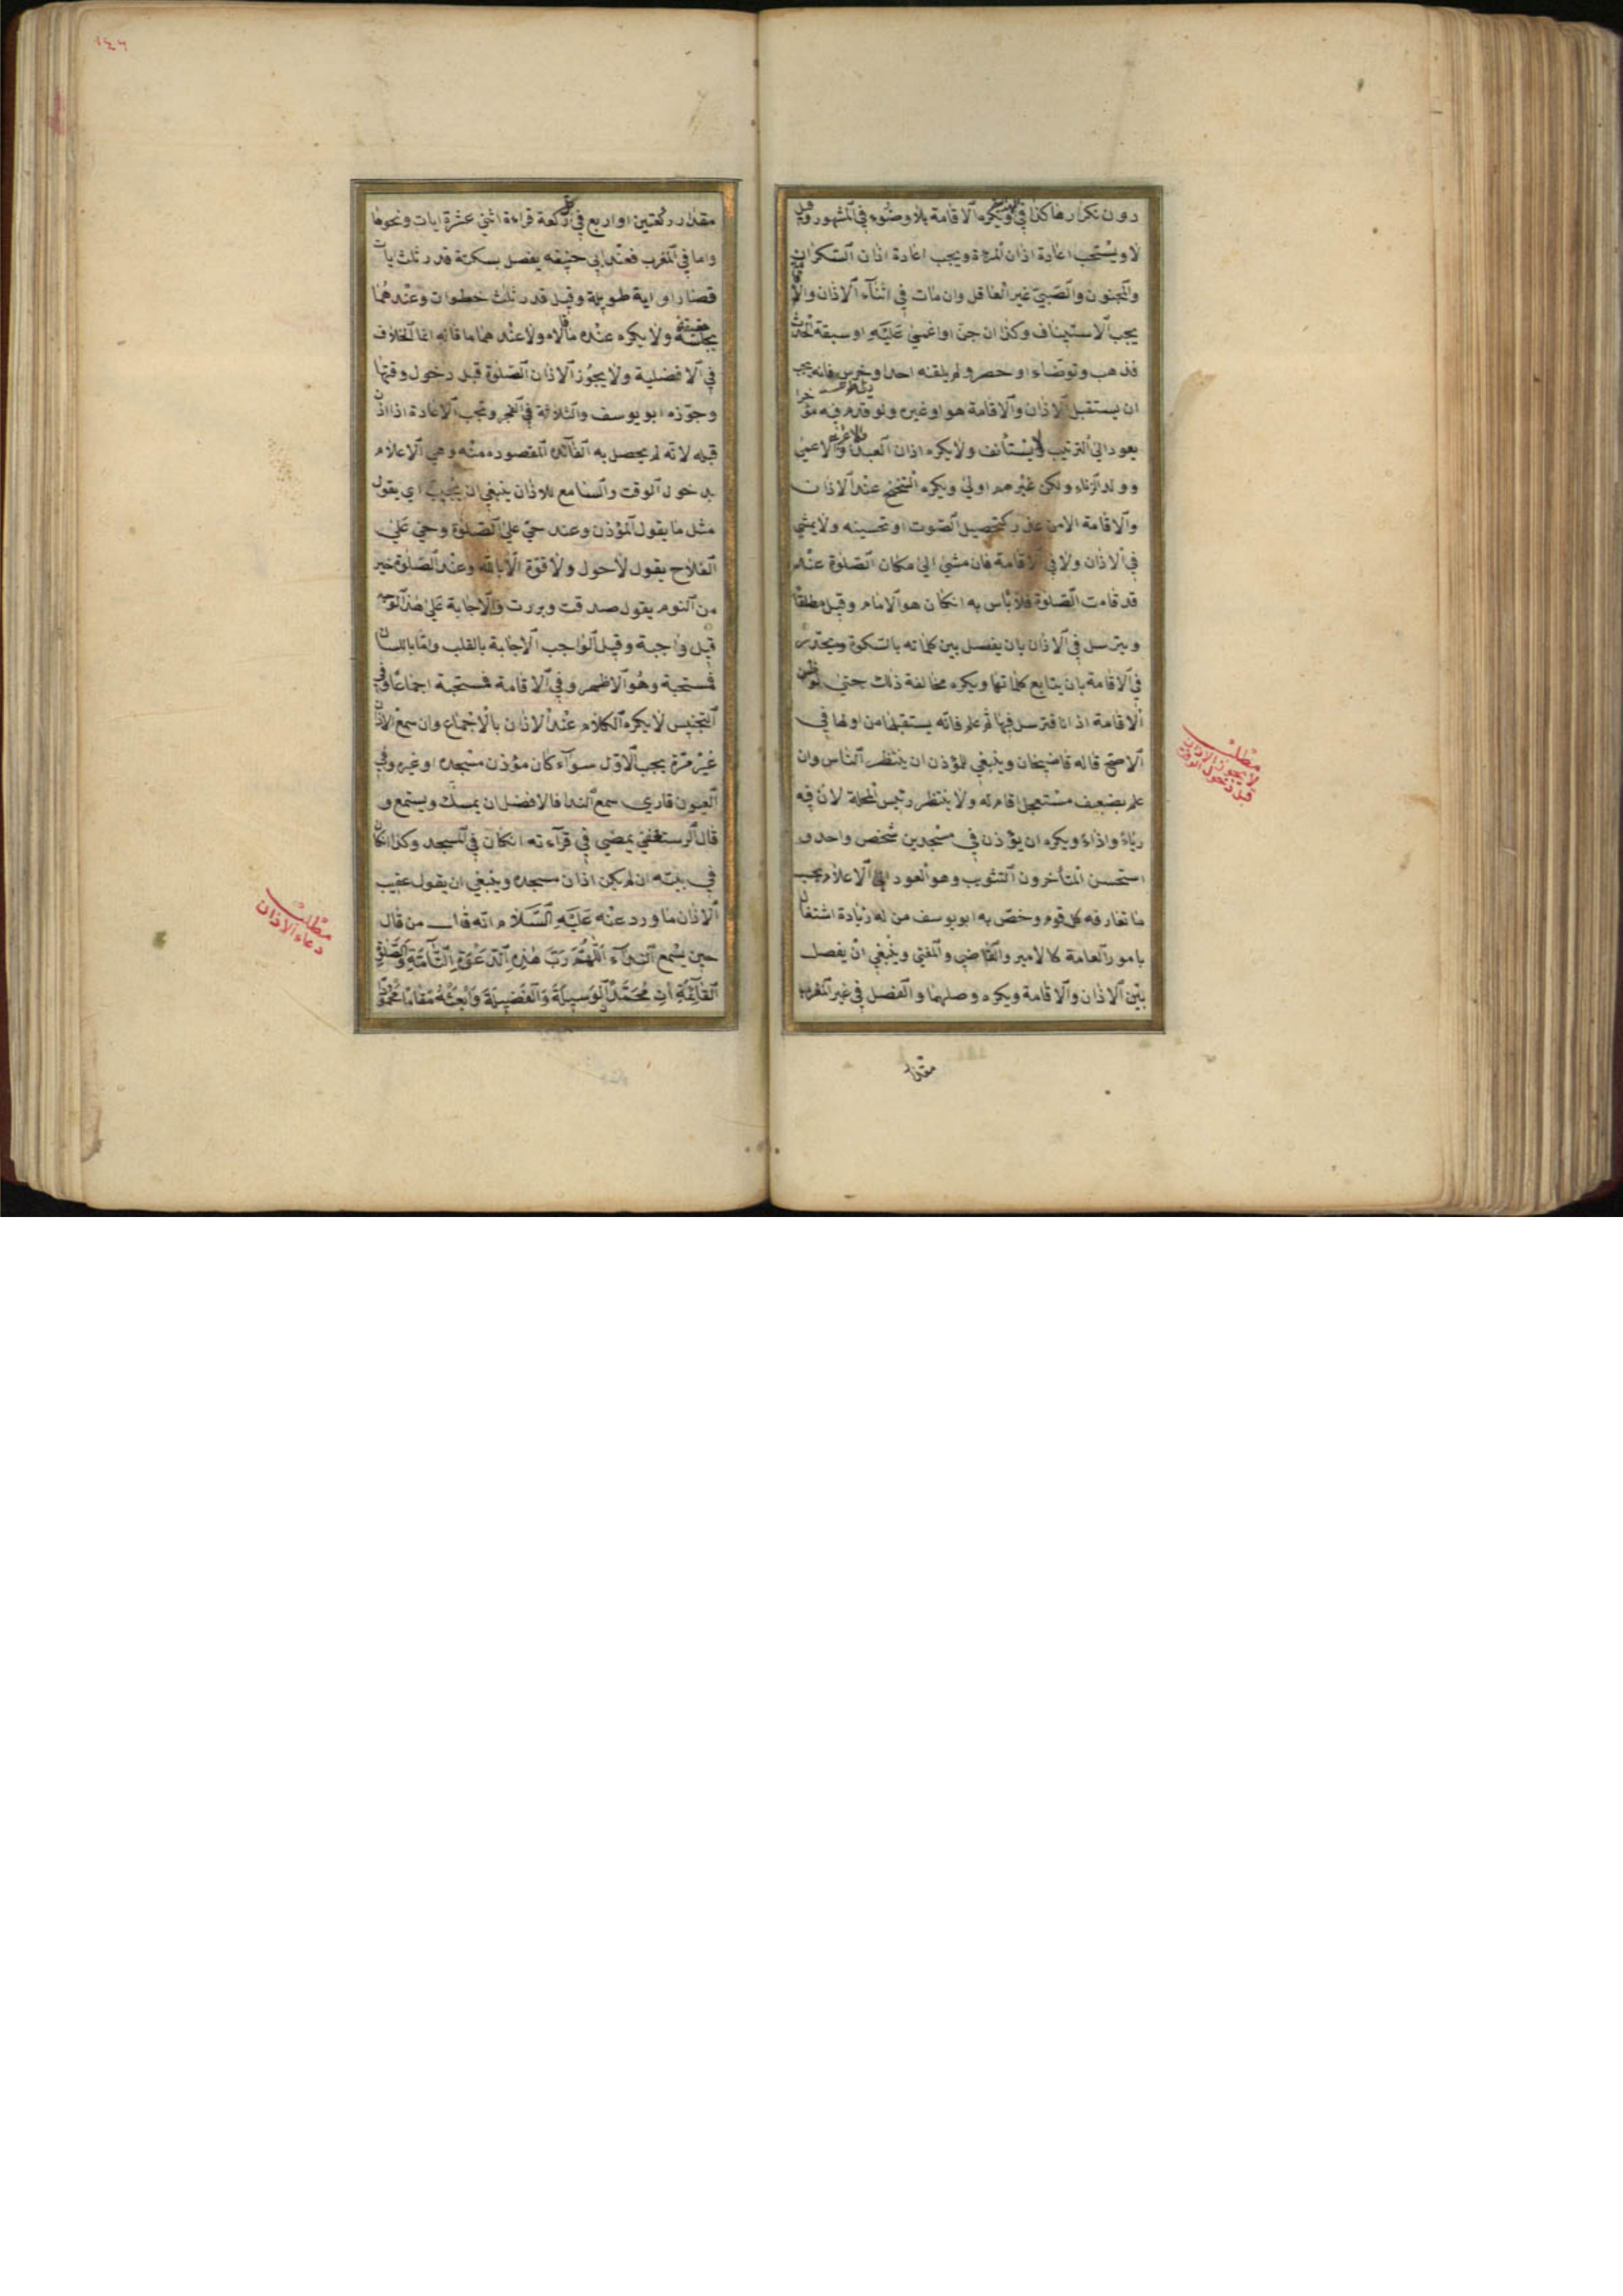 دون تكرارها كذا في ويكره الاقامة بلا وضوء في المشهور وقيل
لا ويستحب اعادة اذان المرءة ويجب اعادة اذان السكران
والمجنون والصبي غير العاقل وان مات في اثناء الاذان والاقامة
يجب الاستيناف وكذا ان جن او اغمي عليه او سبقة الحدث
فذهب وتوضاء او حصر ولم يلقنه احد او خرس فانه يجب
ان يستقبل الاذان والاقامة هو او غيره ولو قدم فيه مؤخرا
يعود الي الترتيب لا يستأنف ولا يكره اذان العبد والاعمي
وولد الزناء ولكن غيرهم اولي ويكره التنحنح عند الاذان
والاقامة الا من عذر كتحصيل الصوت او تحسينه ولا يمشي
في الاذان ولا في الاقامة فان مشي الي مكان الصلوة عند
قد قامت الصلوة فلا بأس به انكان هو الامام وقيل مطلقا
ويترسل في الاذان بان يفصل بين كلماته بالسكوة ويحدر
في الاقامة بان يتابع كلماتها ويكره مخالفة ذلك حتي لو ظن
الاقامة اذانا فترسل فيها ثم علم فانه يستقبلها من اولها في
الاصح قاله قاضيخان وينبغي للمؤذن ان ينتظر الناس وان
علم بضعيف مستعجل اقام له ولا ينتظر رئيس المحلة لان فيه
رياء واذاء ويكره ان يؤذن في مسجدين شخص واحد و
استحسن المتأخرون التثويب وهو العود الي الاعلام بحسب
ما تعارفه كل قوم وخص به ابو يوسف من له زيادة اشتغال
بامور العامة كالامير والقاضي والمفتي وينبغي ان يفصل
بين الاذان والاقامة ويكره وصلهما والفصل في غير المغرب
مقدار
مطلب
لا يجوز الاذان
قبل دخول الوقت
١٤٦
مقدار ركعتين او اربع في كل ركعة قراءة اثني عشرة ايات ونحوها
واما في المغرب فعند ابي حنيفه يفصل بسكتة قدر ثلث ايات
قصار او اية طويلة وقيل قدر ثلث خطوات وعندهما
بجلسة خفيفة ولا يكره عنده ما قالاه ولا عندهما ما قاله انما الخلاف
في الافضلية ولا يجوز الاذان الصلوة قبل دخول وقتها
وجوزه ابو يوسف والثلاثة في الفجر وتجب الاعادة اذا اذن
قبله لانه لم يحصل به الفائدة المقصوده منه وهي الاعلام
بدخول الوقت والسامع للاذان ينبغي ان يجيب اي يقول
مثل ما يقول المؤذن وعند حي علي الصلوة وحي علي
الفلاح يقول لا حول ولا قوة الا بالله وعند الصلوة خير
من النوم يقول صدقت وبررت والاجابة علي هذا الوجه
قيل واجبة وقيل الواجب الاجابة بالقلب واما باللسان
فمستحبة وهو الاظهر وفي الاقامة فمستحبة اجماعا وفي
التجنيس لا يكره الكلام عند الاذان بالاجماع وان سمع الاذان
غير مرة يجب الاول سواء كان مؤذن مسجده او غيره وفي
العيون قاري سمع الندا فالافضل ان يمسك ويستمع و
قال الرستغفني يمضي في قراءته انكان في المسجد وكذا انكان
في بيته ان لم يكن اذان مسجده وينبغي ان يقول عقيب
الاذان ما ورد عنه عليه السلام انه قال من قال
حين يسمع النداء اللهم رب هذه الدعوة التامة والصلوة
القائمة ات محمدا الوسيلة والفضيلة وابعثه مقاما محمودا
مطلب
دعاء الاذان